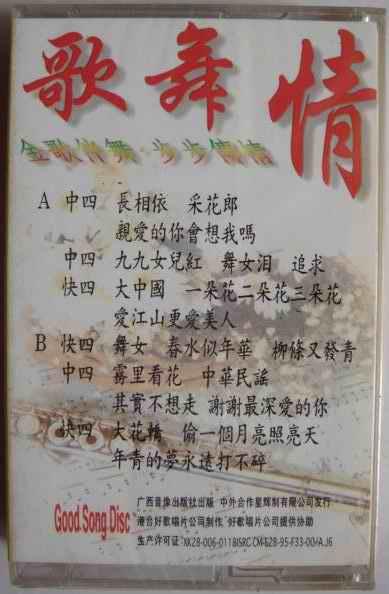 歌舞情
金歌伴舞·步步傳情
A 中四 長相依 采花郎
親愛的你會想我嗎
中四 九九女兒紅 舞女泪 追求
快四 大中國 一朵花二朵花三朵花
愛江山更愛美人
B 快四 舞女 春水似年華 柳條又發青
中四 霧里看花 中華民謠
其實不想走 謝謝最深愛的你
快四 大花轎 偷一個月亮照亮天
年青的夢永遠打不碎
Good Song Disc
广西音像出版社出版 中外合作星辉制有限公司发行
港台好歌唱片公司制作 好歌唱片公司提供协助
生产许可证